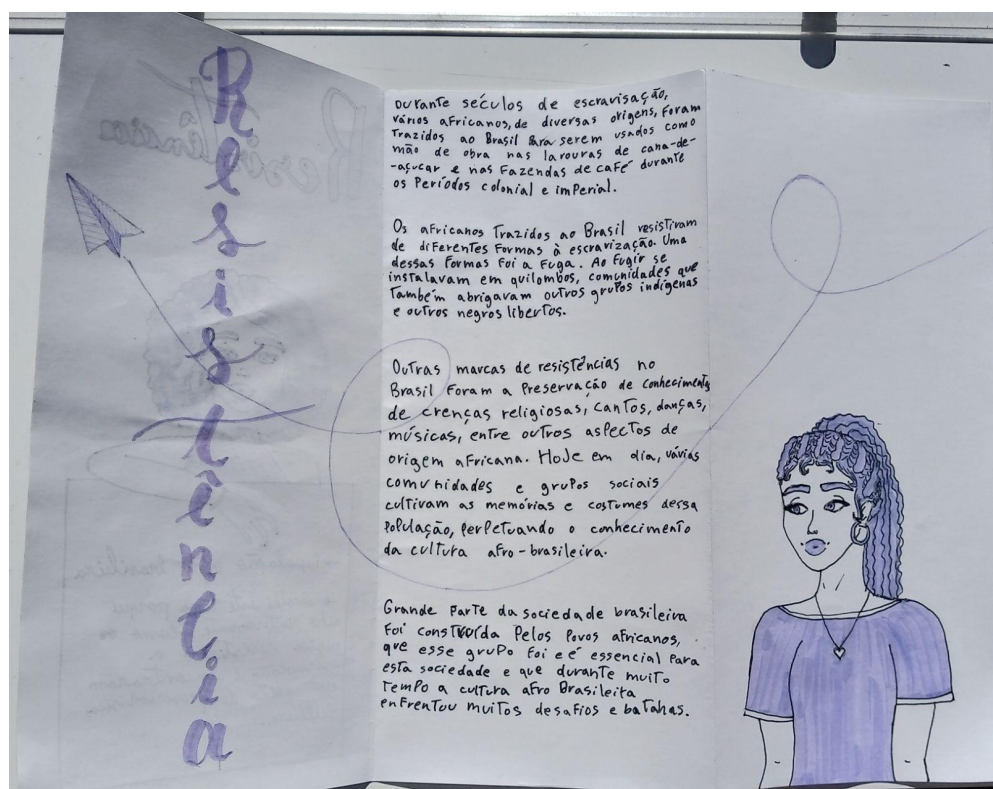 Resistência
Durante séculos de escravisação,
vários africanos, de diversas origens, foram
trazidos ao Brasil para serem usados como
mão de obra nas lavouras de cana-de-
-açucar e nas fazendas de café durante
os períodos colonial e imperial.
Os africanos trazidos ao Brasil resistiram
de diferentes formas à escravização. Uma
dessas formas foi a fuga. Ao fugir se
instalavam em quilombos, comunidades que
também abrigavam outros grupos indígenas
e outros negros libertos.
Outras marcas de resistências no
Brasil foram a preservação de conhecimentos
de crenças religiosas, cantos, danças,
músicas, entre outros aspectos de
origem africana. Hoje em dia, várias
comunidades e grupos sociais
cultivam as memórias e costumes dessa
população, perpetuando o conhecimento
da cultura afro-brasileira.
Grande parte da sociedade brasileira
foi construída pelos povos africanos,
que esse grupo foi e é essencial para
esta sociedade e que durante muito
tempo a cultura afro Brasileita
enfrentou muitos desafios e batahas.